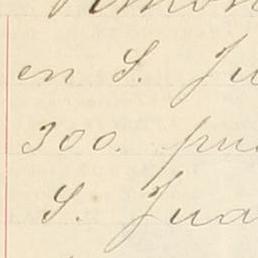 en S. Ju
300. pue
S. Jua